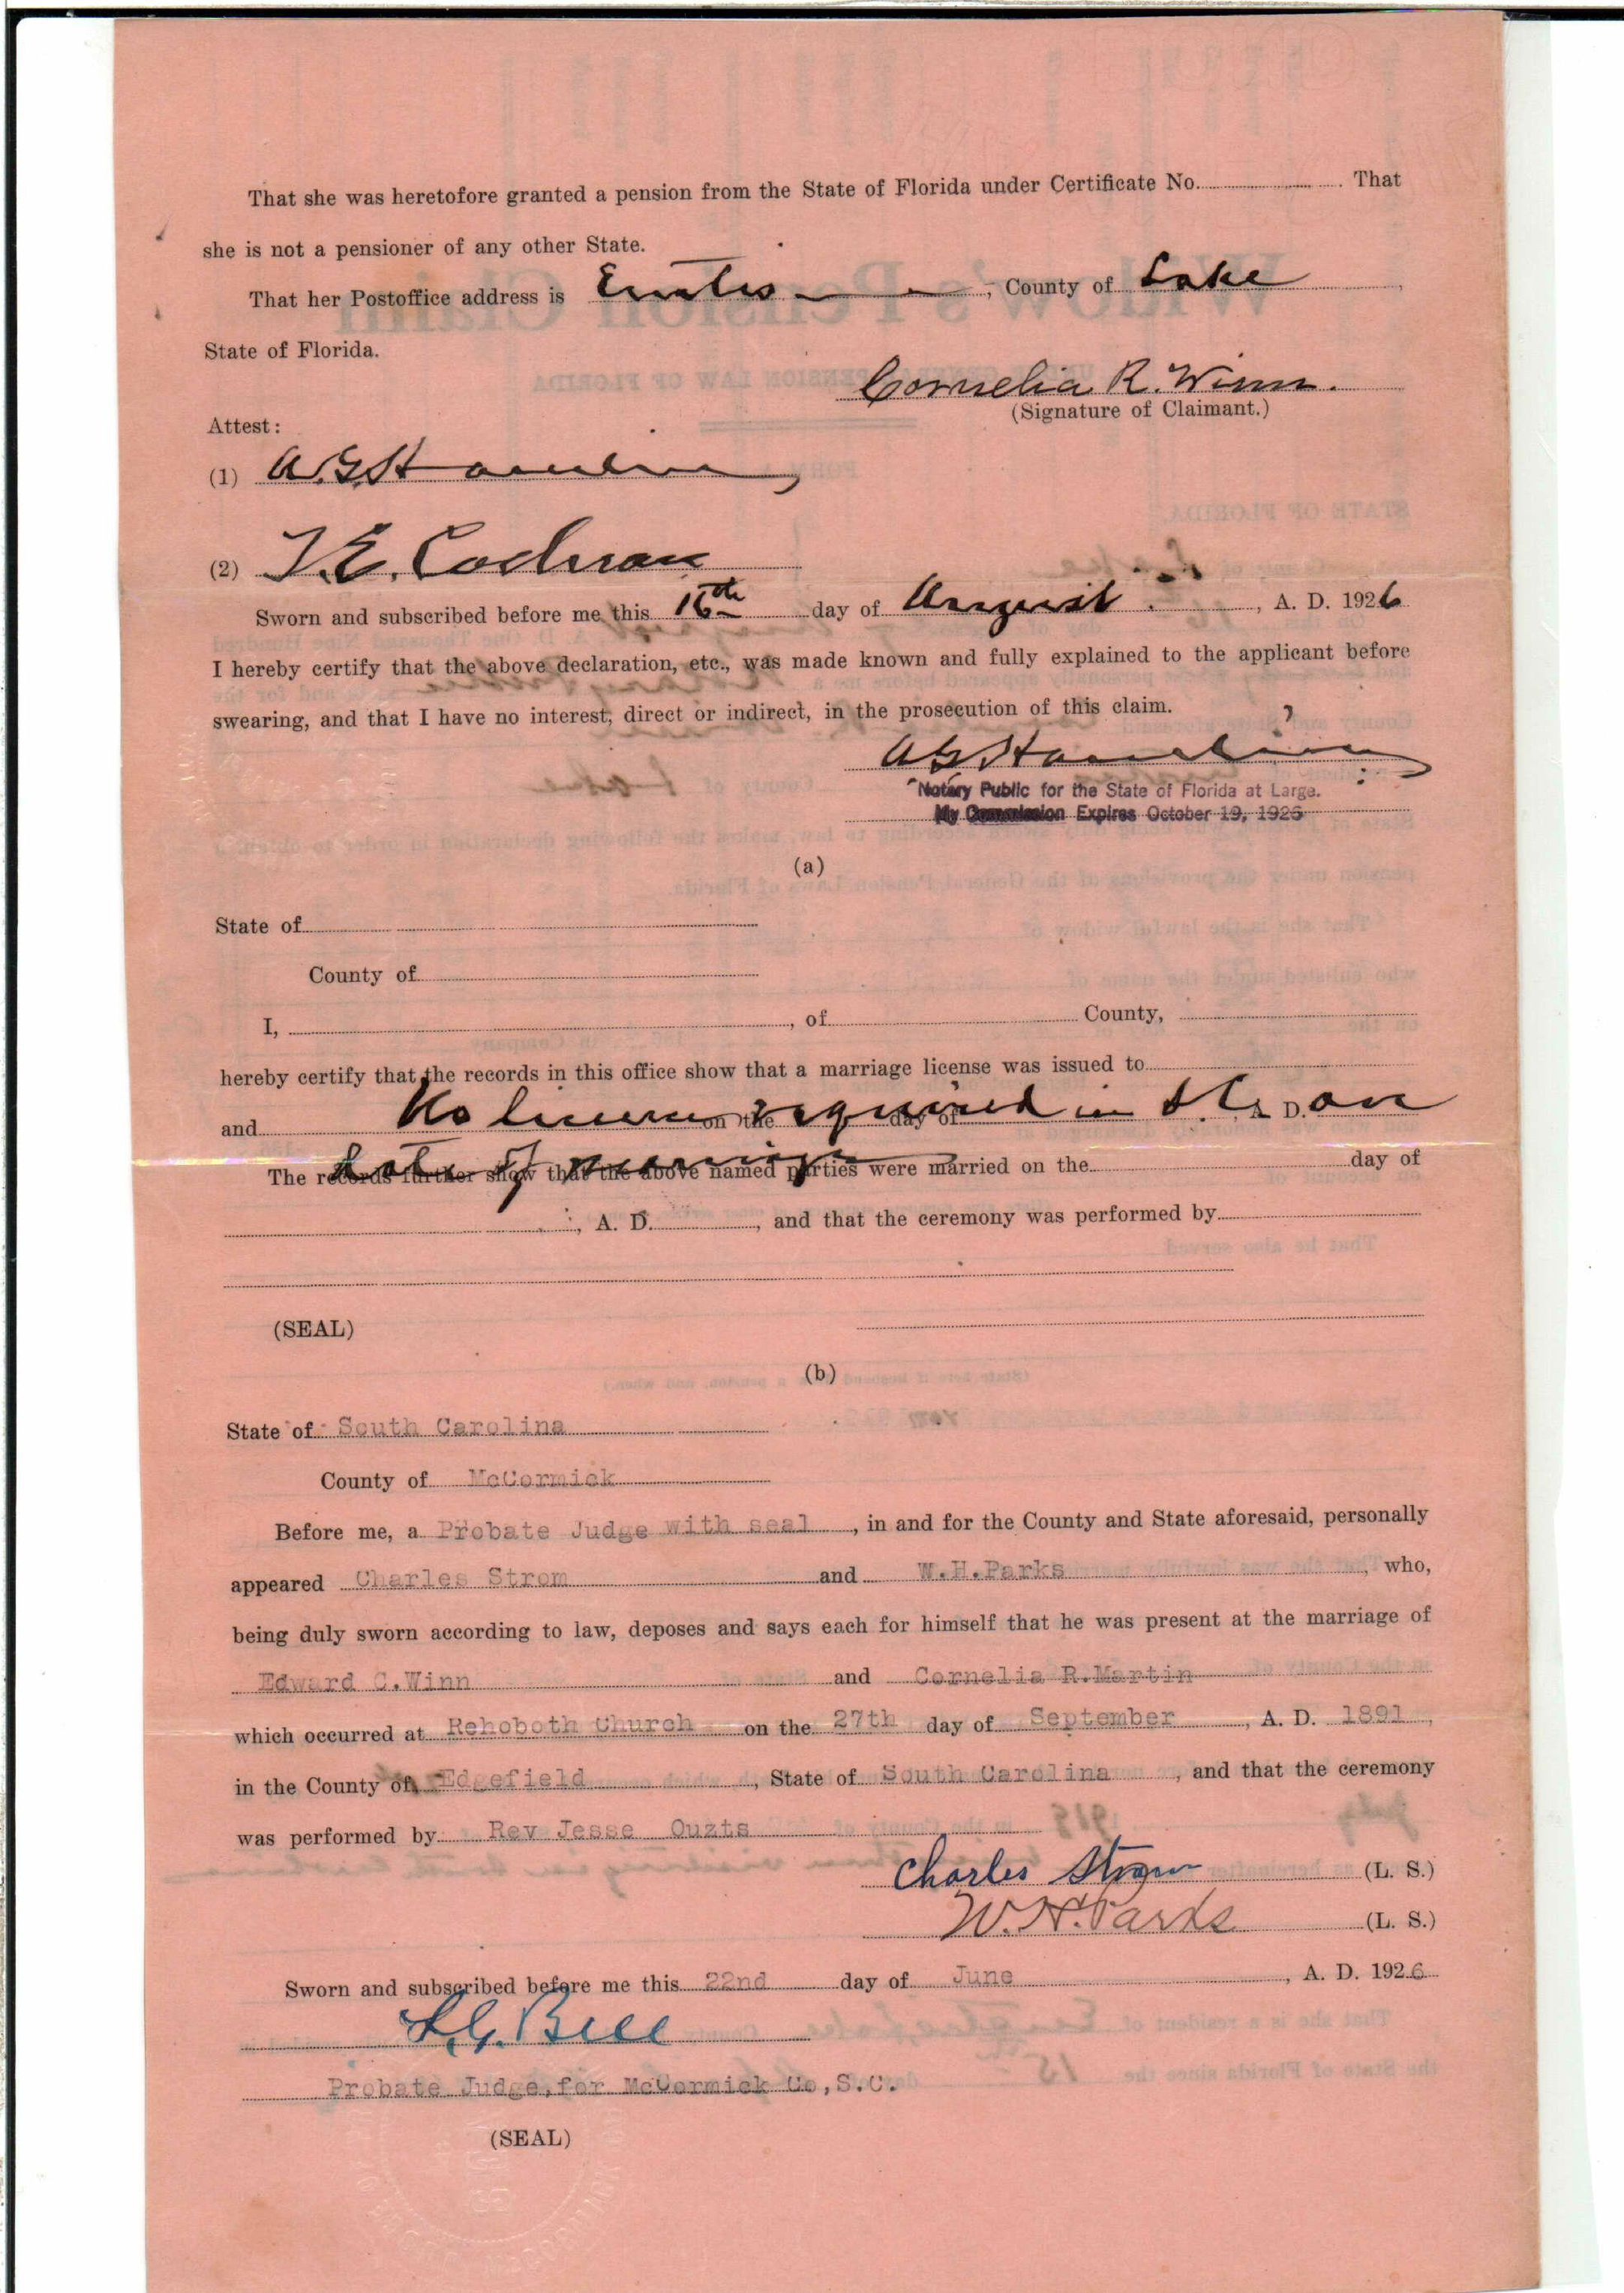 That she was heretofore granted a pension from the State of Florida under Certificate No. That
she is not a pensioner of any other State.
That her Postoffice address is Eustis, County of Lake,
State of Florida.
Cornelia R. Winn.
(Signature of Claimant.)
Attest:
(1) A.G. Hamlin
(2) T.E. Cochran
Sworn and subscribed before me this 16th day of August, A. D. 1926
I hereby certify that the above declaration, etc., was made known and fully explained to the applicant before
swearing, and that I have no interest, direct or indirect, in the prosecution of this claim.
A G Hamlin
Notary Public for the State of Florida at Large.
My Commission Expires October 19, 1926
(a)
State of
County of
I, , of County,
hereby certify that the records in this office show that a marriage license was issued to
and on the day of A. D.
No license required in S.C. on
date of marriage
The records further show that the above named parties were married on the day of
, A. D. , and that the ceremony was performed by
(SEAL)
(b)
State of South Carolina
County of McCormick
Before me, a Probate Judge with seal, in and for the County and State aforesaid, personally
appeared Charles Strom and W.H.Parks, who,
being duly sworn according to law, deposes and says each for himself that he was present at the marriage of
Edward C.Winn and Cornelia R.Martin
which occurred at Rehoboth Church on the 27th day of September, A. D. 1891,
in the County of Edgefield, State of South Carolina, and that the ceremony
was performed by Rev Jesse Ouzts
Charles Strom (L. S.)
W.H.Parks (L. S.)
Sworn and subscribed before me this 22nd day of June, A. D. 1926
L.G. Bell
Probate Judge,for McCormick Co,S.C.
(SEAL)